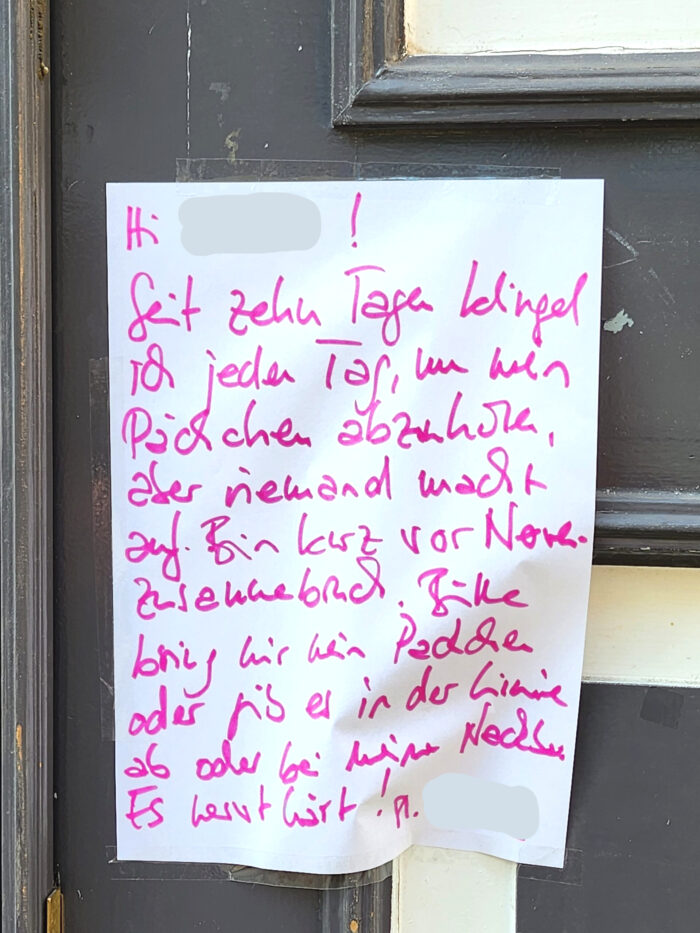 Hi !
Seit zehn Tagen klingel
ich jeden Tag, um mein
Päckchen abzuholen,
aber niemand macht
auf. Bin kurz vor Nerven-
zusammenbruch. Bitte
bring mir mein Päckchen
oder gib es in der
ab oder bei meinen Nachbarn
Es nervt hart!